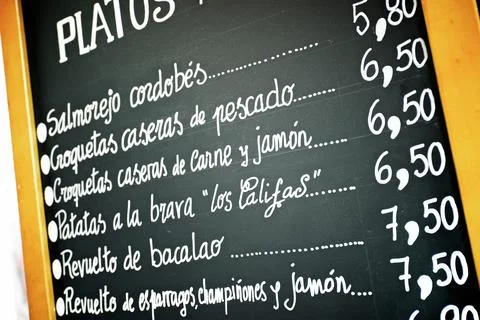 PLATOS
Salmorejo cordobés............ ........ 5,80
Croquetas caseras de pescado........ 6,50
Croquetas caseras de carne y jamón........ 6,50
Patatas a la brava "los Califas"........ 6,50
Revuelto de bacalao .................. 7,50
Revuelto de esparragos, champiñones y jamón.... 7,50